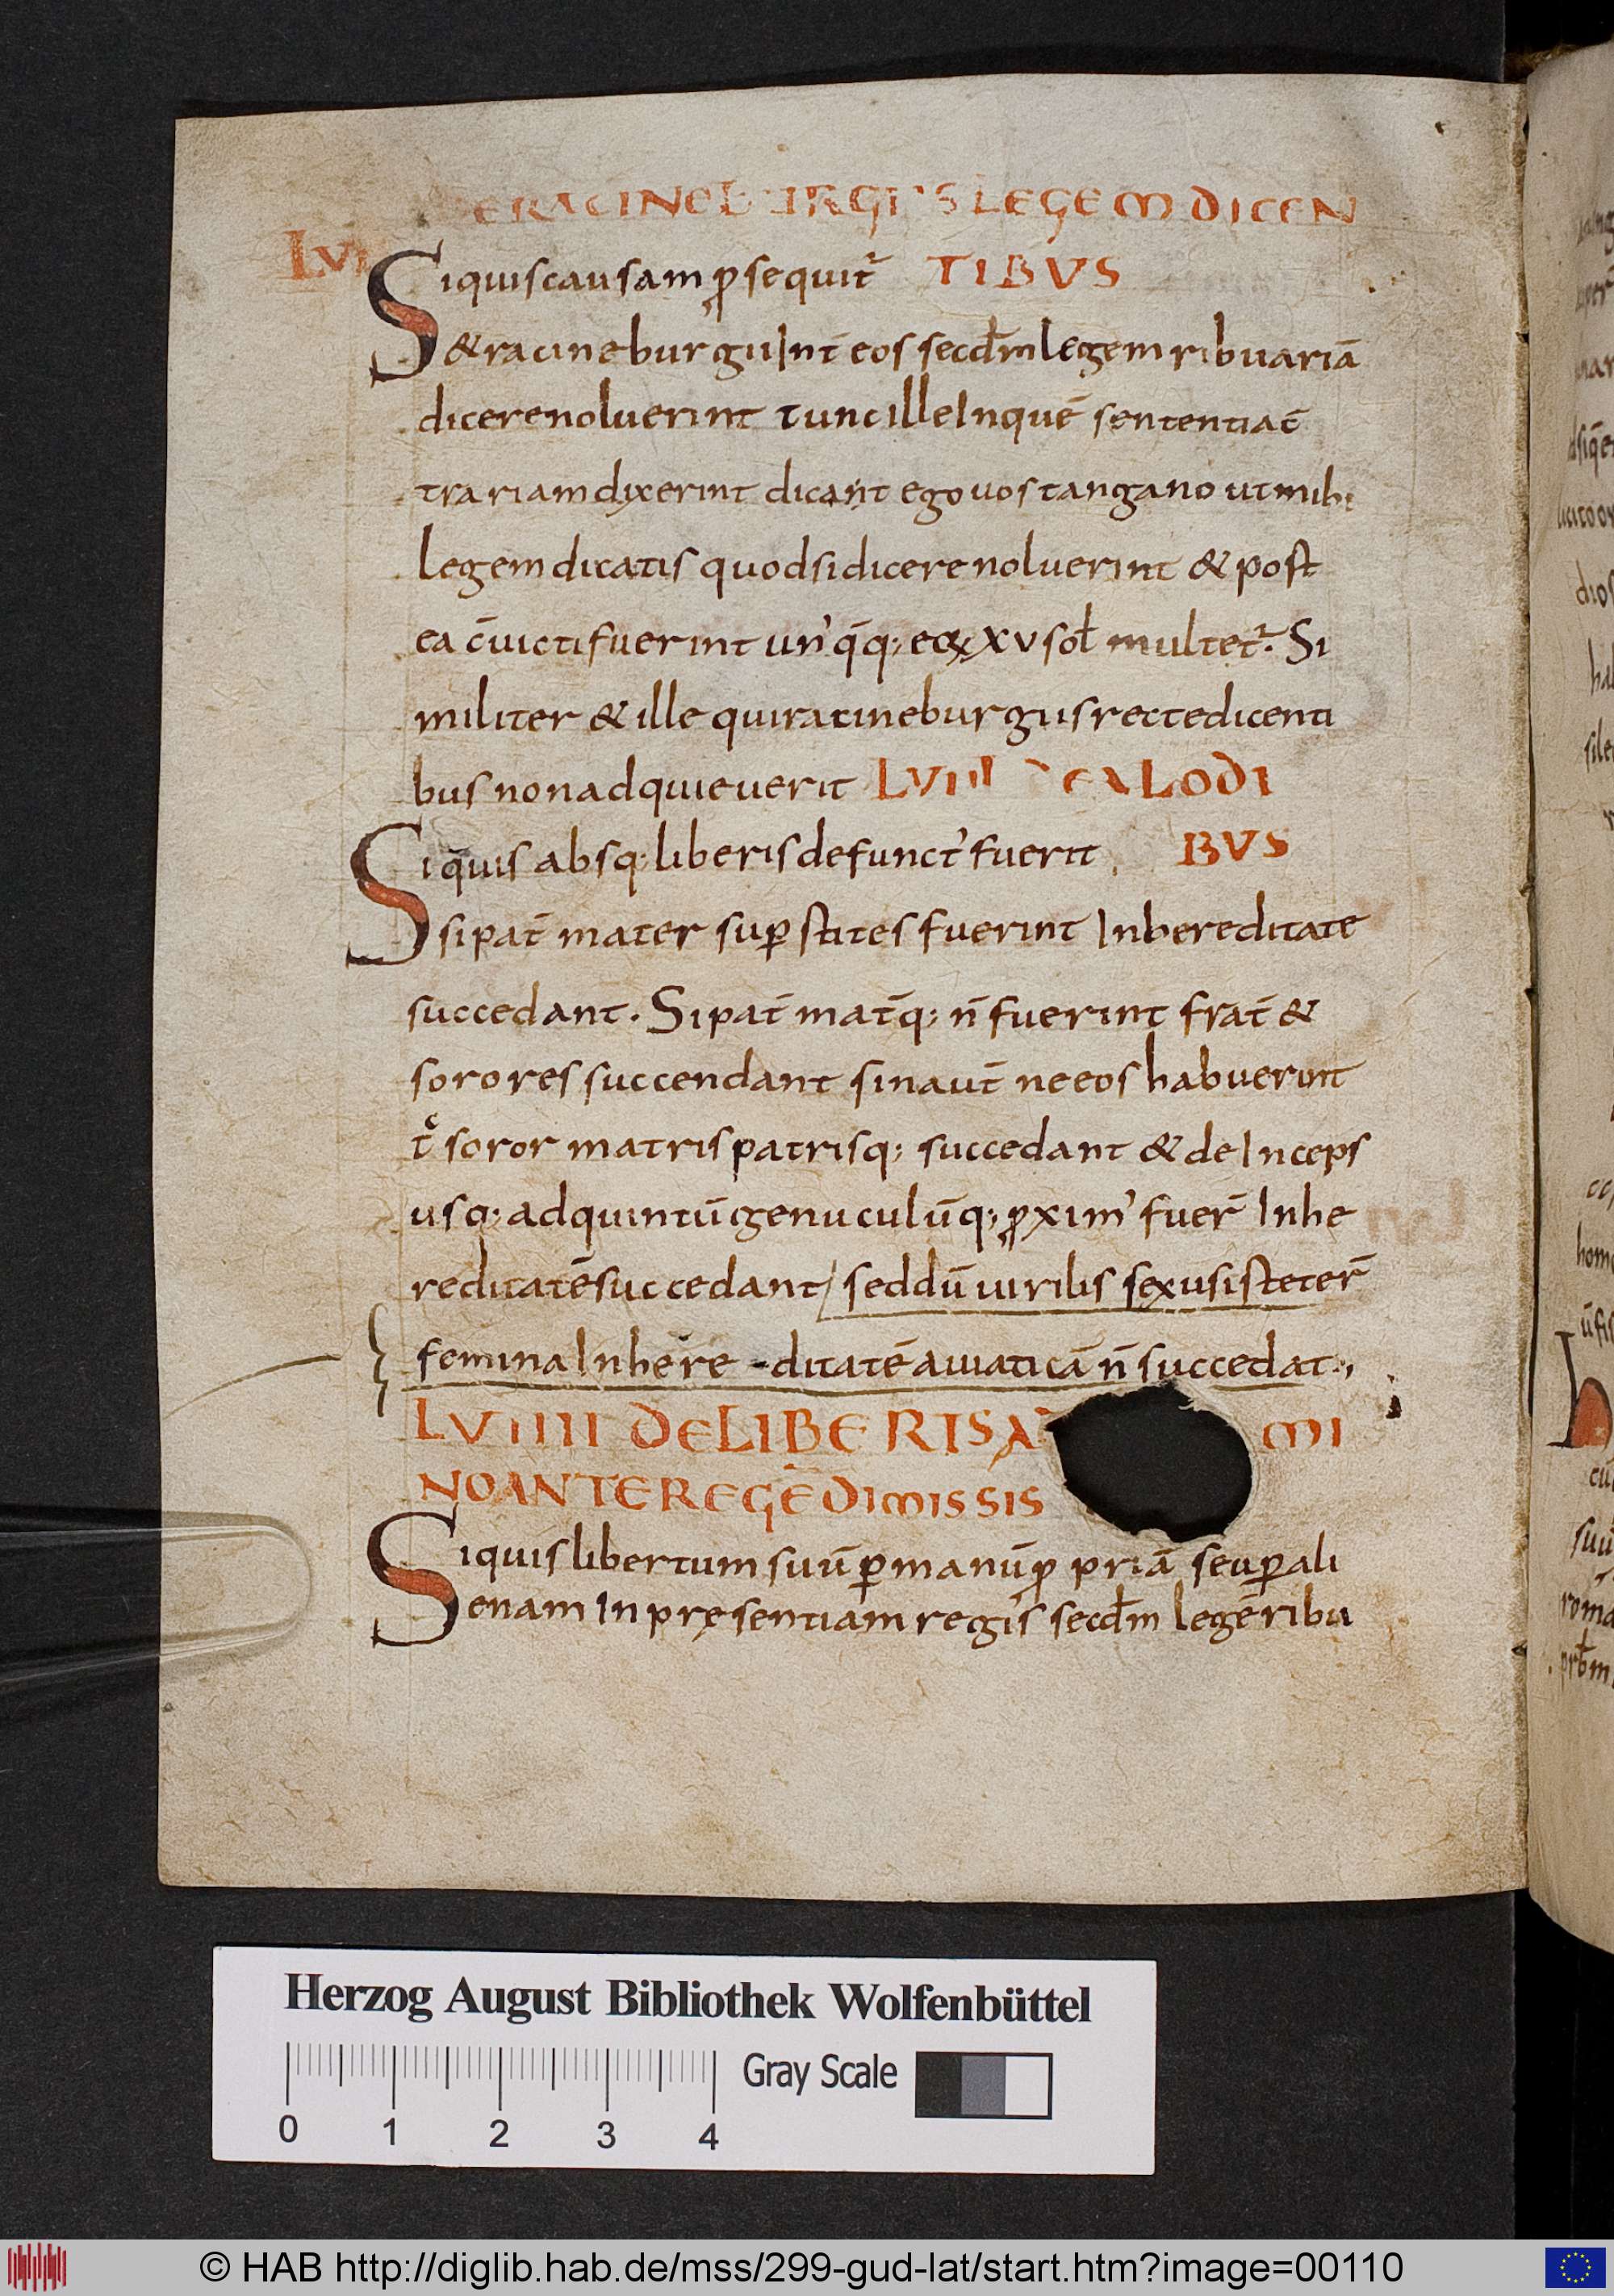 ERACINEBURGIIS LEGEM DICEN
LVII
Siquis causam ꝓsequit̄ TIBVS
& racineburgii Int̄ eos secd̄m legem ribuariā
dicere noluerint tunc ille Inquē sententiā c̄
trariam dixerint dicant ego uos tangano ut mihi
legem dicatis quod si dicere noluerint & post
ea c̄uicti fuerint un' q̄q; eo xv sol multet̄. Si
militer & ille qui racineburgiis recte dicenti
bus non adquieuerit LVIII DE ALODI
Siquis absq; liberis defunct' fuerit BVS
si pat̄ mater suꝑstites fuerint In hereditate
succedant. Si pat̄ mat̄q; n̄ fuerint frat̄ &
sorores succendant sin aut̄ ne eos habuerint
t̄c soror matris patrisq; succedant & deInceps
usq; ad quintū genuculū q; ꝓxim' fuer̄ In he
reditatē succedant / sed dū uirilis sexus isteter̄
femina In here -ditatē auiaticā n̄ succedat.,
LVIIII DE LIBERIS A MI
NO ANTE REGĒ DIMISSIS
Siquis libertum suū ꝑ manū ꝓpriā seu ꝑ ali
enam In pręsentiam regis secd̄m legē ribu
Herzog August Bibliothek Wolfenbüttel
Gray Scale
0 1 2 3 4
© HAB http://diglib.hab.de/mss/299-gud-lat/start.htm?image=00110